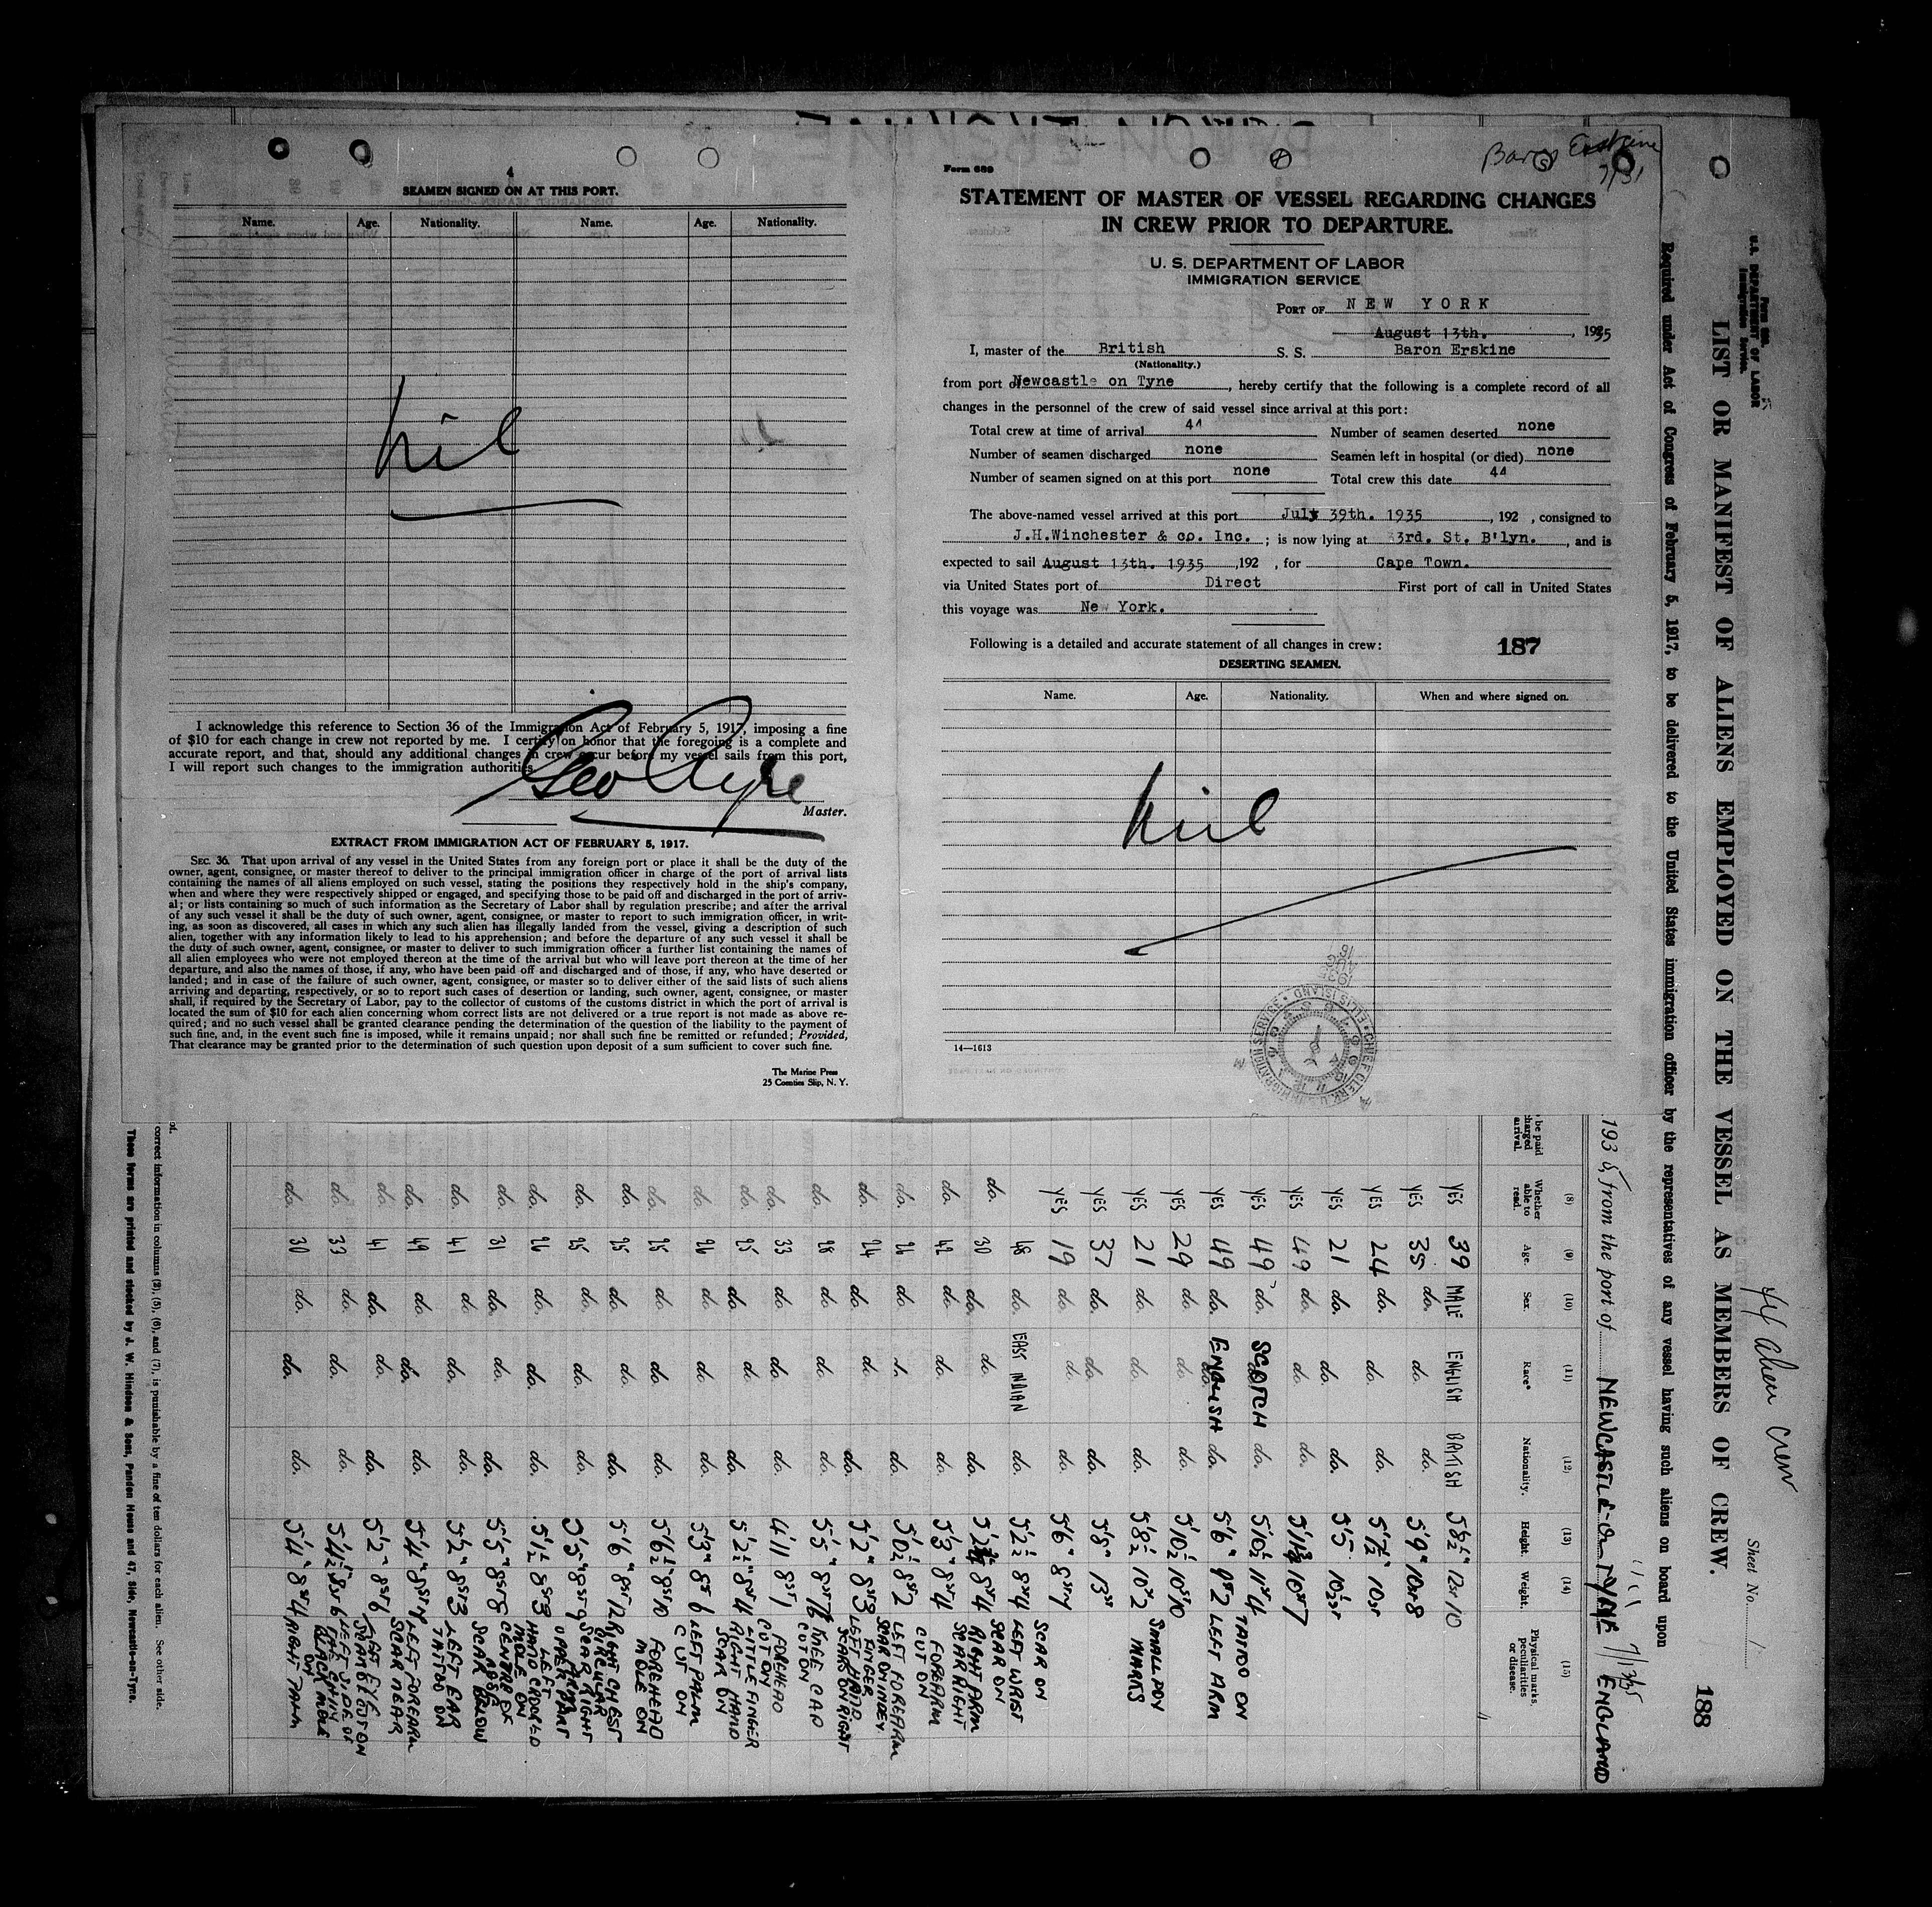 4
SEAMEN SIGNED ON AT THIS PORT.
Name. Age. Nationality. Name. Age. Nationality.
nil
I acknowledge this reference to Section 36 of the Immigration Act of February 5, 1917, imposing a fine
of $10 for each change in crew not reported by me. I certify on honor that the foregoing is a complete and
accurate report, and that, should any additional changes in crew occur before my vessel sails from this port,
I will report such changes to the immigration authorities.
Geo Ayre
Master.
EXTRACT FROM IMMIGRATION ACT OF FEBRUARY 5, 1917.
SEC. 36. That upon arrival of any vessel in the United States from any foreign port or place it shall be the duty of the
owner, agent, consignee, or master thereof to deliver to the principal immigration officer in charge of the port of arrival lists
containing the names of all aliens employed on such vessel, stating the positions they respectively hold in the ship's company,
when and where they were respectively shipped or engaged, and specifying those to be paid off and discharged in the port of arriv-
al; or lists containing so much of such information as the Secretary of Labor shall by regulation prescribe; and after the arrival
of any such vessel it shall be the duty of such owner, agent, consignee, or master to report to such immigration officer, in writ-
ing, as soon as discovered, all cases in which any such alien has illegally landed from the vessel, giving a description of such
alien, together with any information likely to lead to his apprehension; and before the departure of any such vessel it shall be
the duty of such owner, agent, consignee, or master to deliver to such immigration officer a further list containing the names of
all alien employees who were not employed thereon at the time of the arrival but who will leave port thereon at the time of her
departure, and also the names of those, if any, who have been paid off and discharged and of those, if any, who have deserted or
landed; and in case of the failure of such owner, agent, consignee, or master so to deliver either of the said lists of such aliens
arriving and departing, respectively, or so to report such cases of desertion or landing, such owner, agent, consignee, or master
shall, if required by the Secretary of Labor, pay to the collector of customs of the customs district in which the port of arrival is
located the sum of $10 for each alien concerning whom correct lists are not delivered or a true report is not made as above re-
quired; and no such vessel shall be granted clearance pending the determination of the question of the liability to the payment of
such fine, and, in the event such fine is imposed, while it remains unpaid; nor shall such fine be remitted or refunded; Provided,
That clearance may be granted prior to the determination of such question upon deposit of a sum sufficient to cover such fine.
The Marine Press
25 Coenties Slip, N. Y.
Form 689
Baron Erskine
7/31
STATEMENT OF MASTER OF VESSEL REGARDING CHANGES
IN CREW PRIOR TO DEPARTURE.
U. S. DEPARTMENT OF LABOR
IMMIGRATION SERVICE
PORT OF NEW YORK
August 13th. , 1935
I, master of the British S. S. Baron Erskine
(Nationality.)
from port of Newcastle on Tyne , hereby certify that the following is a complete record of all
changes in the personnel of the crew of said vessel since arrival at this port:
Total crew at time of arrival 44 Number of seamen deserted none
Number of seamen discharged none Seamen left in hospital (or died) none
Number of seamen signed on at this port none Total crew this date 44
The above-named vessel arrived at this port July 39th. 1935 , 192 , consigned to
J.H.Winchester & co. Inc. ; is now lying at 33rd. St. B'lyn. , and is
expected to sail August 13th. 1935 ,192 , for Cape Town.
via United States port of Direct First port of call in United States
this voyage was New York.
Following is a detailed and accurate statement of all changes in crew: 187
DESERTING SEAMEN.
Name. Age. Nationality. When and where signed on.
nil
14—1613
Form 680
U. S. DEPARTMENT OF LABOR
Immigration Service
44 Alien Crew
Sheet No. 1
LIST OR MANIFEST OF ALIENS EMPLOYED ON THE VESSEL AS MEMBERS OF CREW.
188
Required under Act of Congress of February 5, 1917, to be delivered to the United States immigration officer by the representatives of any vessel having such aliens on board upon
1935, from the port of NEWCASTLE-O-TYNE ENGLAND
(8) (9) (10) (11) (12) (13) (14) (15)
be paid charged arrival. Whether able to read. Age. Sex Race* Nationality. Height. Weight. Physical marks, peculiarities or disease.
YES 39 MALE ENGLISH BRITISH 5'8½" 12st 10
YES 35 do. do. do. 5'9" 10st 8
YES 24 do. do. do. 5'7½" 10st
YES 21 do. do. do. 5'5
YES 49 do. do. do. 10st 7
YES 49 do. SCOTCH do. 5'10½ 11st 4 TATTOO ON
YES 49 do. ENGLISH do. 5'6" 9st 2 LEFT ARM
YES 29 do. do. do. 5'10½ 10st 10
YES 21 do. do. do. 5'8½ 10st 2 SMALL POX MARKS
YES 37 do. do. do. 5'8" 13st
YES 19 do. do. do. 5'6" 8st 7
48 do. EAST INDIAN do. 5'2½ 8st 4 SCAR ON LEFT WRIST
do. 30 do. do. do. 8st 4 SCAR ON RIGHT ARM
do. 42 do. do. do. 5'3" 8st 4 SCAR RIGHT FOREARM
do. do. do. 5'0½ 8st 2 CUT ON LEFT FOREARM
do. 24 do. do. do. 5'2" 8st 3 SCAR ON INDEX FINGER LEFT HAND
do. 28 do. do. do. 5'5" SCARS ON RIGHT KNEE CAP
do. 33 do. do. do. 4'11 8st 1 CUT ON FOREHEAD
do. 25 do. do. do. 5'2½" 8st 4 CUT ON LITTLE FINGER RIGHT HAND
do. 26 do. do. do. 5'3" 8st 6 CUT ON LEFT PALM
do. 25 do. do. do. 5'6½" 8st 10 MOLE ON FOREHEAD
do. 25 do. do. do. 5'6" 8st 12 RIGHT CHEST
do. 25 do. do. do. 5'5" 8st 9 SCAR RIGHT
do. 26 do. do. do. 5'1½ 8st 3 LEFT HAND CROOKED
do. 31 do. do. do. 5'5" 8st 8 MOLE ON CENTRE OF NOSE
do. 41 do. do. do. 5'2" 8st 3 SCAR BELOW LEFT EAR
do. 49 do. do. do. 5'4" TATTOO ON LEFT FOREARM
do. 41 do. do. do. 5'2" 8st 6 SCAR NEAR LEFT EYE
do. 33 do. do. do. 5'4½" 8st 6 LEFT SIDE OF THE CHIN
do. 30 do. do. do. 5'4" 8st 4 BLACK MOLE ON RIGHT PALM
of.
correct information in columns (2), (5), (6), and (7), is punishable by a fine of ten dollars for each alien. See other side.
These forms are printed and stocked by J. W. Hindson & Sons, Pandon House and 47, Side, Newcastle-on-Tyne.